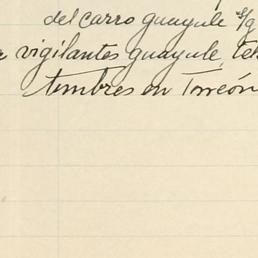 del carro guayule s/g
vigilantes guayule, tel
timbres en Torreón